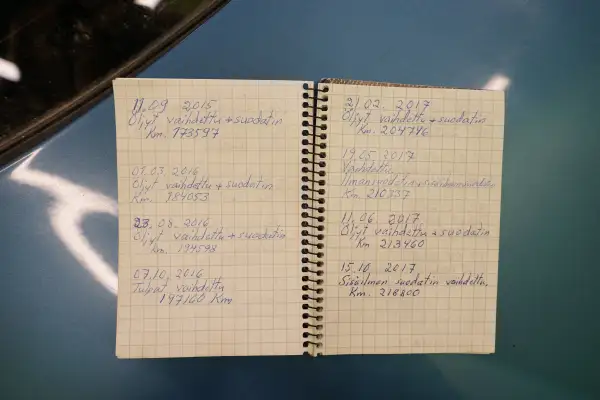 11.09 2015
Öljyt vaihdettu + suodatin
Km. 173597
01.03.2016
Öljyt vaihdettu + suodatin
Km. 184053
23.08.2016
Öljyt vaihdettu + suodatin
Km. 194598
07.10.2016
Tulpat vaihdettu
197160 Km
21.02.2017
Öljyt vaihdettu + suodatin
Km. 204746
19.05.2017
Vaihdettu
Km. 210337
11.06.2017
Öljyt vaihdettu + suodatin
Km 213460
15.10.2017
Sisäilman suodatin vaihdettu.
Km. 218800